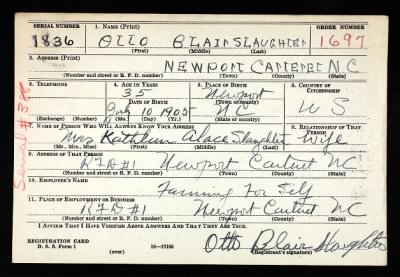 SERIAL NUMBER 1. NAME (Print) ORDER NUMBER
1836 OTTO BLAIR SLAUGHTER 1697
(First) (Middle) (Last)
2. ADDRESS (Print)
NEWPORT CARTERET N.C.
(Number and street or R. F. D. number) (Town) (County) (State)
3. TELEPHONE 4. AGE IN YEARS 5. PLACE OF BIRTH 6. COUNTRY OF CITIZENSHIP
35 Newport
DATE OF BIRTH (Town or county)
July 10 1905 N C U S
(Exchange) (Number) (Mo.) (Day) (Yr.) (State or country)
7. NAME OF PERSON WHO WILL ALWAYS KNOW YOUR ADDRESS 8. RELATIONSHIP OF THAT PERSON
Mrs Kathleen Slaughter Wife
(Mr., Mrs., Miss) (First) (Middle) (Last)
9. ADDRESS OF THAT PERSON
RFD#1 Newport Carteret NC
(Number and street or R. F. D. number) (Town) (County) (State)
10. EMPLOYER'S NAME
Farming For Self
11. PLACE OF EMPLOYMENT OR BUSINESS
RFD#1 Newport Carteret NC
(Number and street or R. F. D. number) (Town) (County) (State)
I AFFIRM THAT I HAVE VERIFIED ABOVE ANSWERS AND THAT THEY ARE TRUE.
REGISTRATION CARD
D. S. S. Form 1 (over) 16—17105 Otto Blair Slaughter
(Registrant's signature)